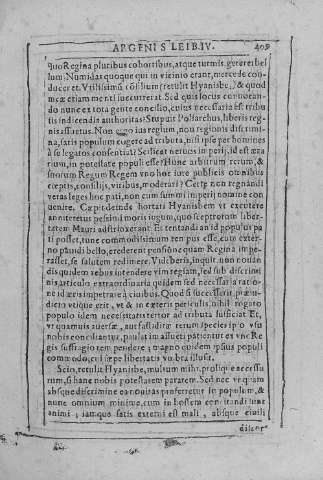 ARGENIS LEIB.IV. 409
quo Regina pluribus cohortibus, atque turmis gereret bel
lum. Numidas quoque qui in vicinio erant, mercede con-
duceret. Vtilissimū cōsilium (retulit Hyanisbe,) & quod
meæ etiam menti succurrerat. Sed quis locus convocan-
do nunc ex tota gente concilio, cuius necessaria est tribu
tis indicendis authoritas? Stupuit Poliarchus, liberis reg-
nis assuetus. Non ergo ius regium, non regionis discrimi-
na, satis populum cogere ad tributa, nisi ipse per homines
à se legatos consentiat? Scilicet nervus imperij, id est æra
rium, in potestate populi esse? Hunc arbitrum rerum, &
suorum Regum Regem vno hoc iure publicis omnibus
cœptis, consilijs, viribus, moderari? Certe non regnandi
veras leges hoc pati, non cum summi imperij nomine con
venire. Cœpit deinde hortari Hyanisbem vt excutere
anniteretur pessimi moris iugum, quo sceptrorum liber-
tatem Mauri adstrinxerant. Et tentandi an id populus pa
ti posset, tunc commodissimum tempus esse, cum exter-
no pauidi bello, crederent pensione quam Regina impe-
rasset, se salutem redimere. Videberis, inquit, non odian
dis quidem rebus intendere vim regiam, sed sub discrimi
nis articulo extraordinaria quidem sed necessaria ratio-
ne id æris impetrare à ciuibus. Quod si successerit, præiu-
dicio vsque erit, vt & in cæteris periculis, nihil rogato
populo idem necessitatis tertor ad tributa sufficiat. Et,
vt quamuis aversæ, aut fastiditæ rerum species ipso vsu
nobis conciliantur, paulatim assueti patientur ex vno Re
gis suffragio rem pendere; magno quidem ipsius populi
commodo, cui sæpe libertatis vmbra illusit.
Scio, retulit Hyanisbe, multum mihi, prolique necessa
rium, si hanc nobis potestatem pararem. Sed nec vnquam
absque discrimine eo novitas proferretur in populum, &
nunc omnium minime, cum in hostem concitandi sunt
animi; iamque satis externi est mali, absque ciuili
discor-